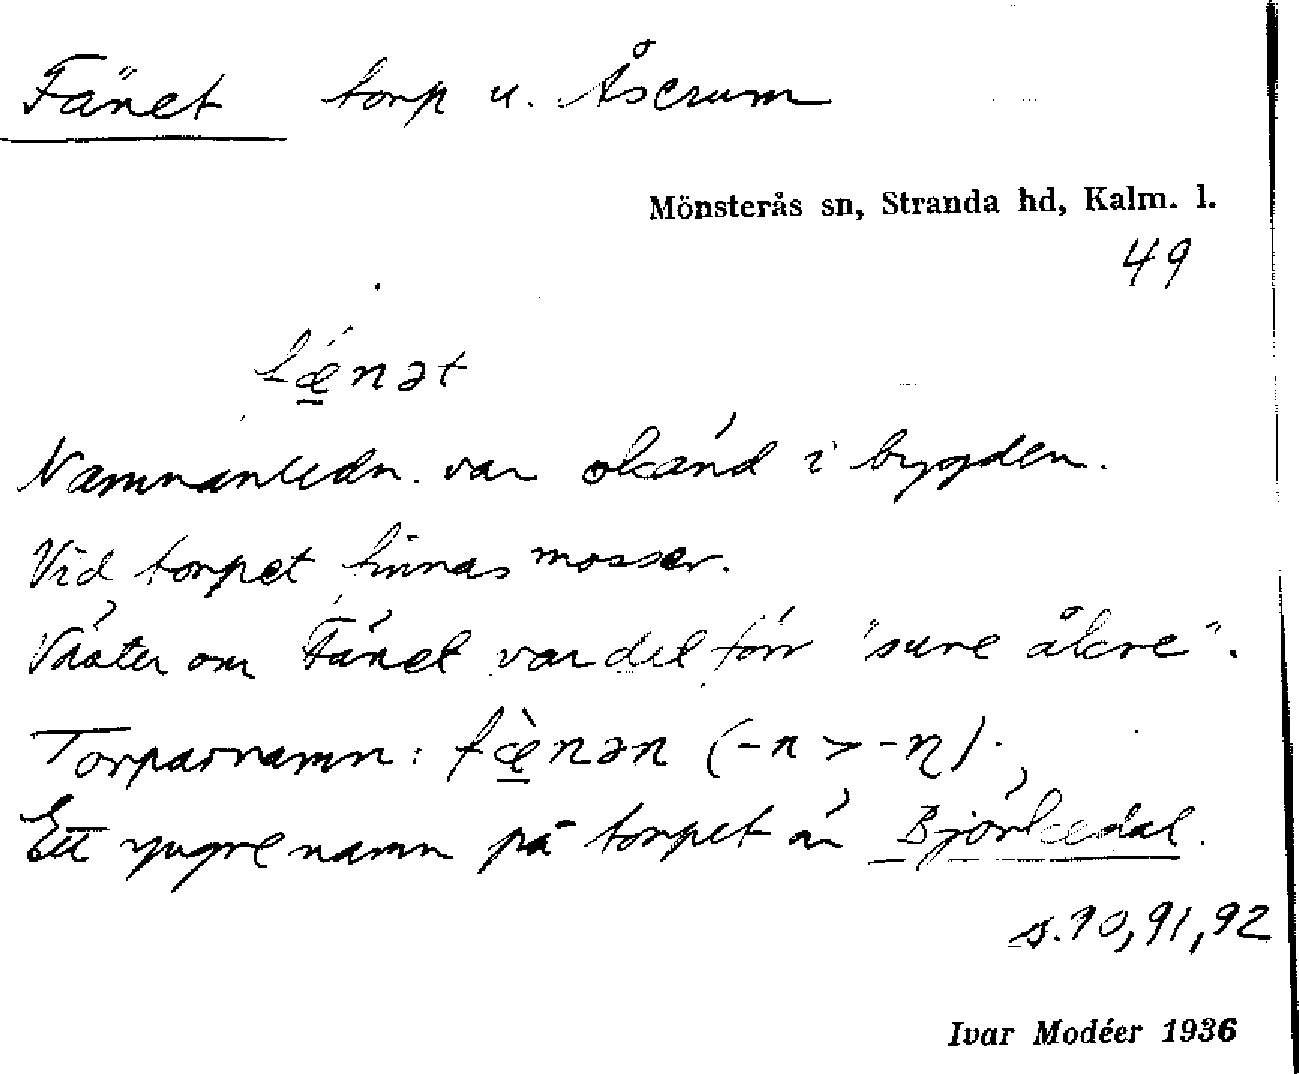 Fänet torp u. Åserum
Mönsterås sn, Stranda hd, Kalm. l.
49
fǽ̱nət
Namnanledn. var okänd i bygden.
Vid torpet finnas mossar.
Väster om Fänet var det förr "sure åkre".
Torparnamn: fæ̱̀nən (-n > -ɳ).
Ett yngre namn på torpet är Björkedal.
s. 90, 91, 92
Ivar Modéer 1936